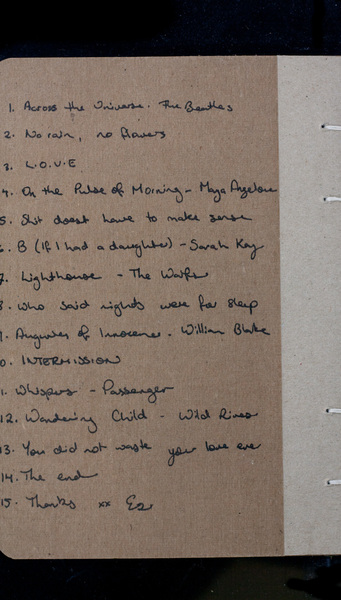 1. Across the Universe. The Beatles
2. No rain, no flowers
3. L.O.V.E
4. On the Pulse of Morning - Maya Angelou
5. Shit doesnt have to make sense
6. B (If I had a daughter) - Sarah Kay
7. Lighthouse - The Waifs
8. Who said nights were for sleep
9. Auguries of Innocence. William Blake
0. INTERMISSION
1. Whispers - Passenger
12. Wandering Child - Wild Rivers
13. You did not waste your love ever
14. The end
15. Thanks xx